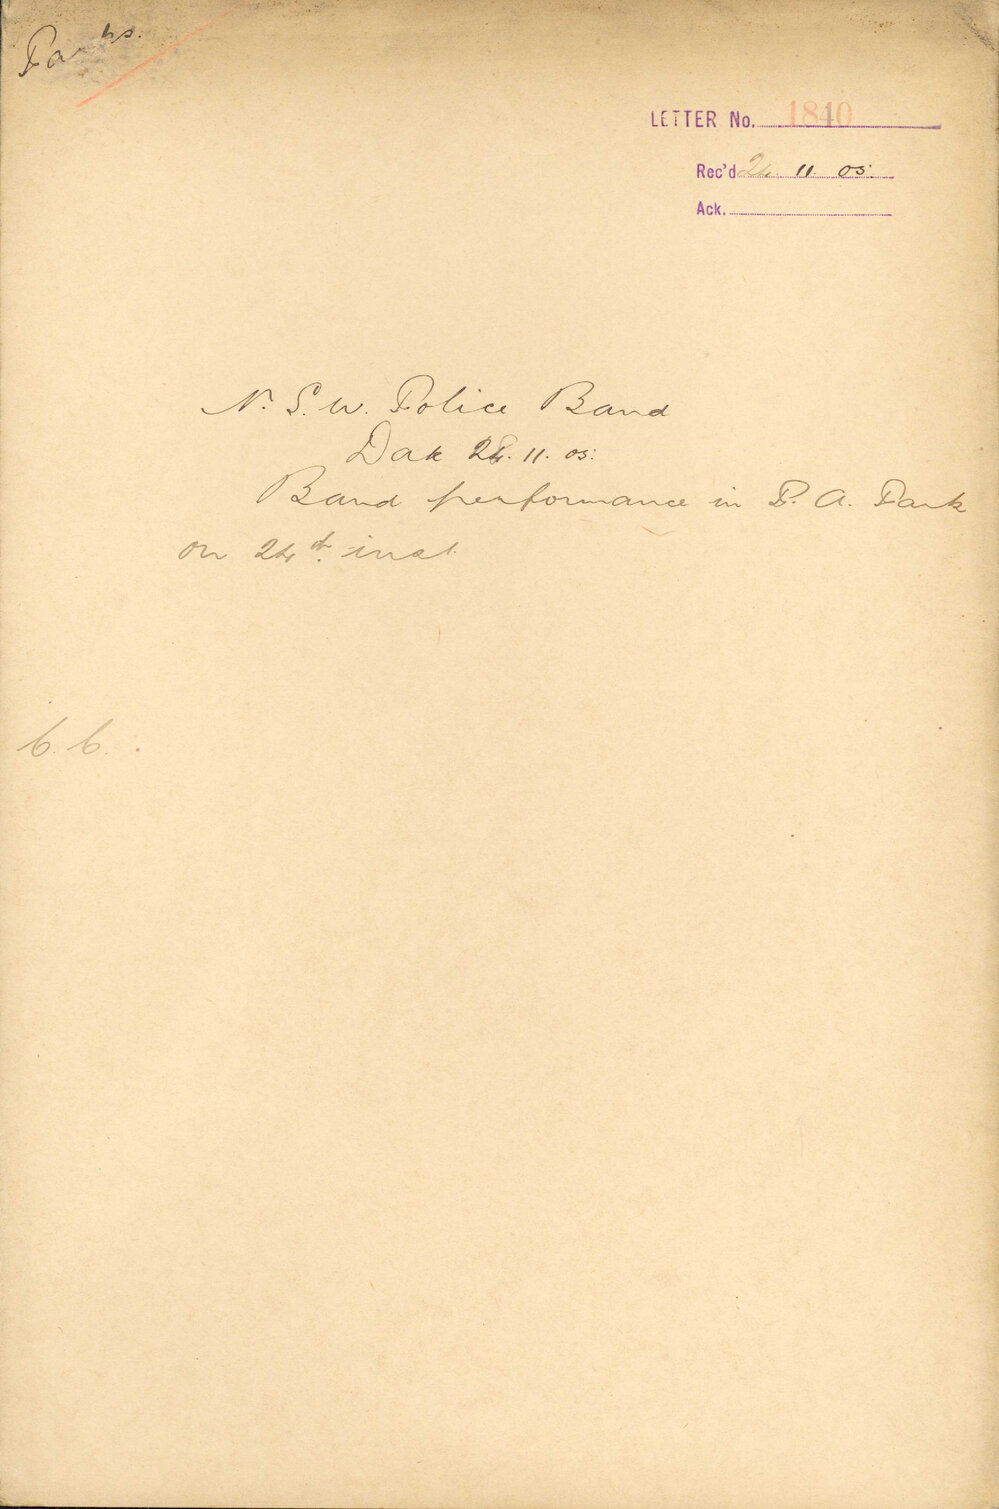 Parks.
LETTER No. 1840
Rec'd 24. 11. 05.
Ack.
N. S. W. Police Band
Date 24. 11. 05.
Band performance in P. A. Park
on 24th inst.
C. C.